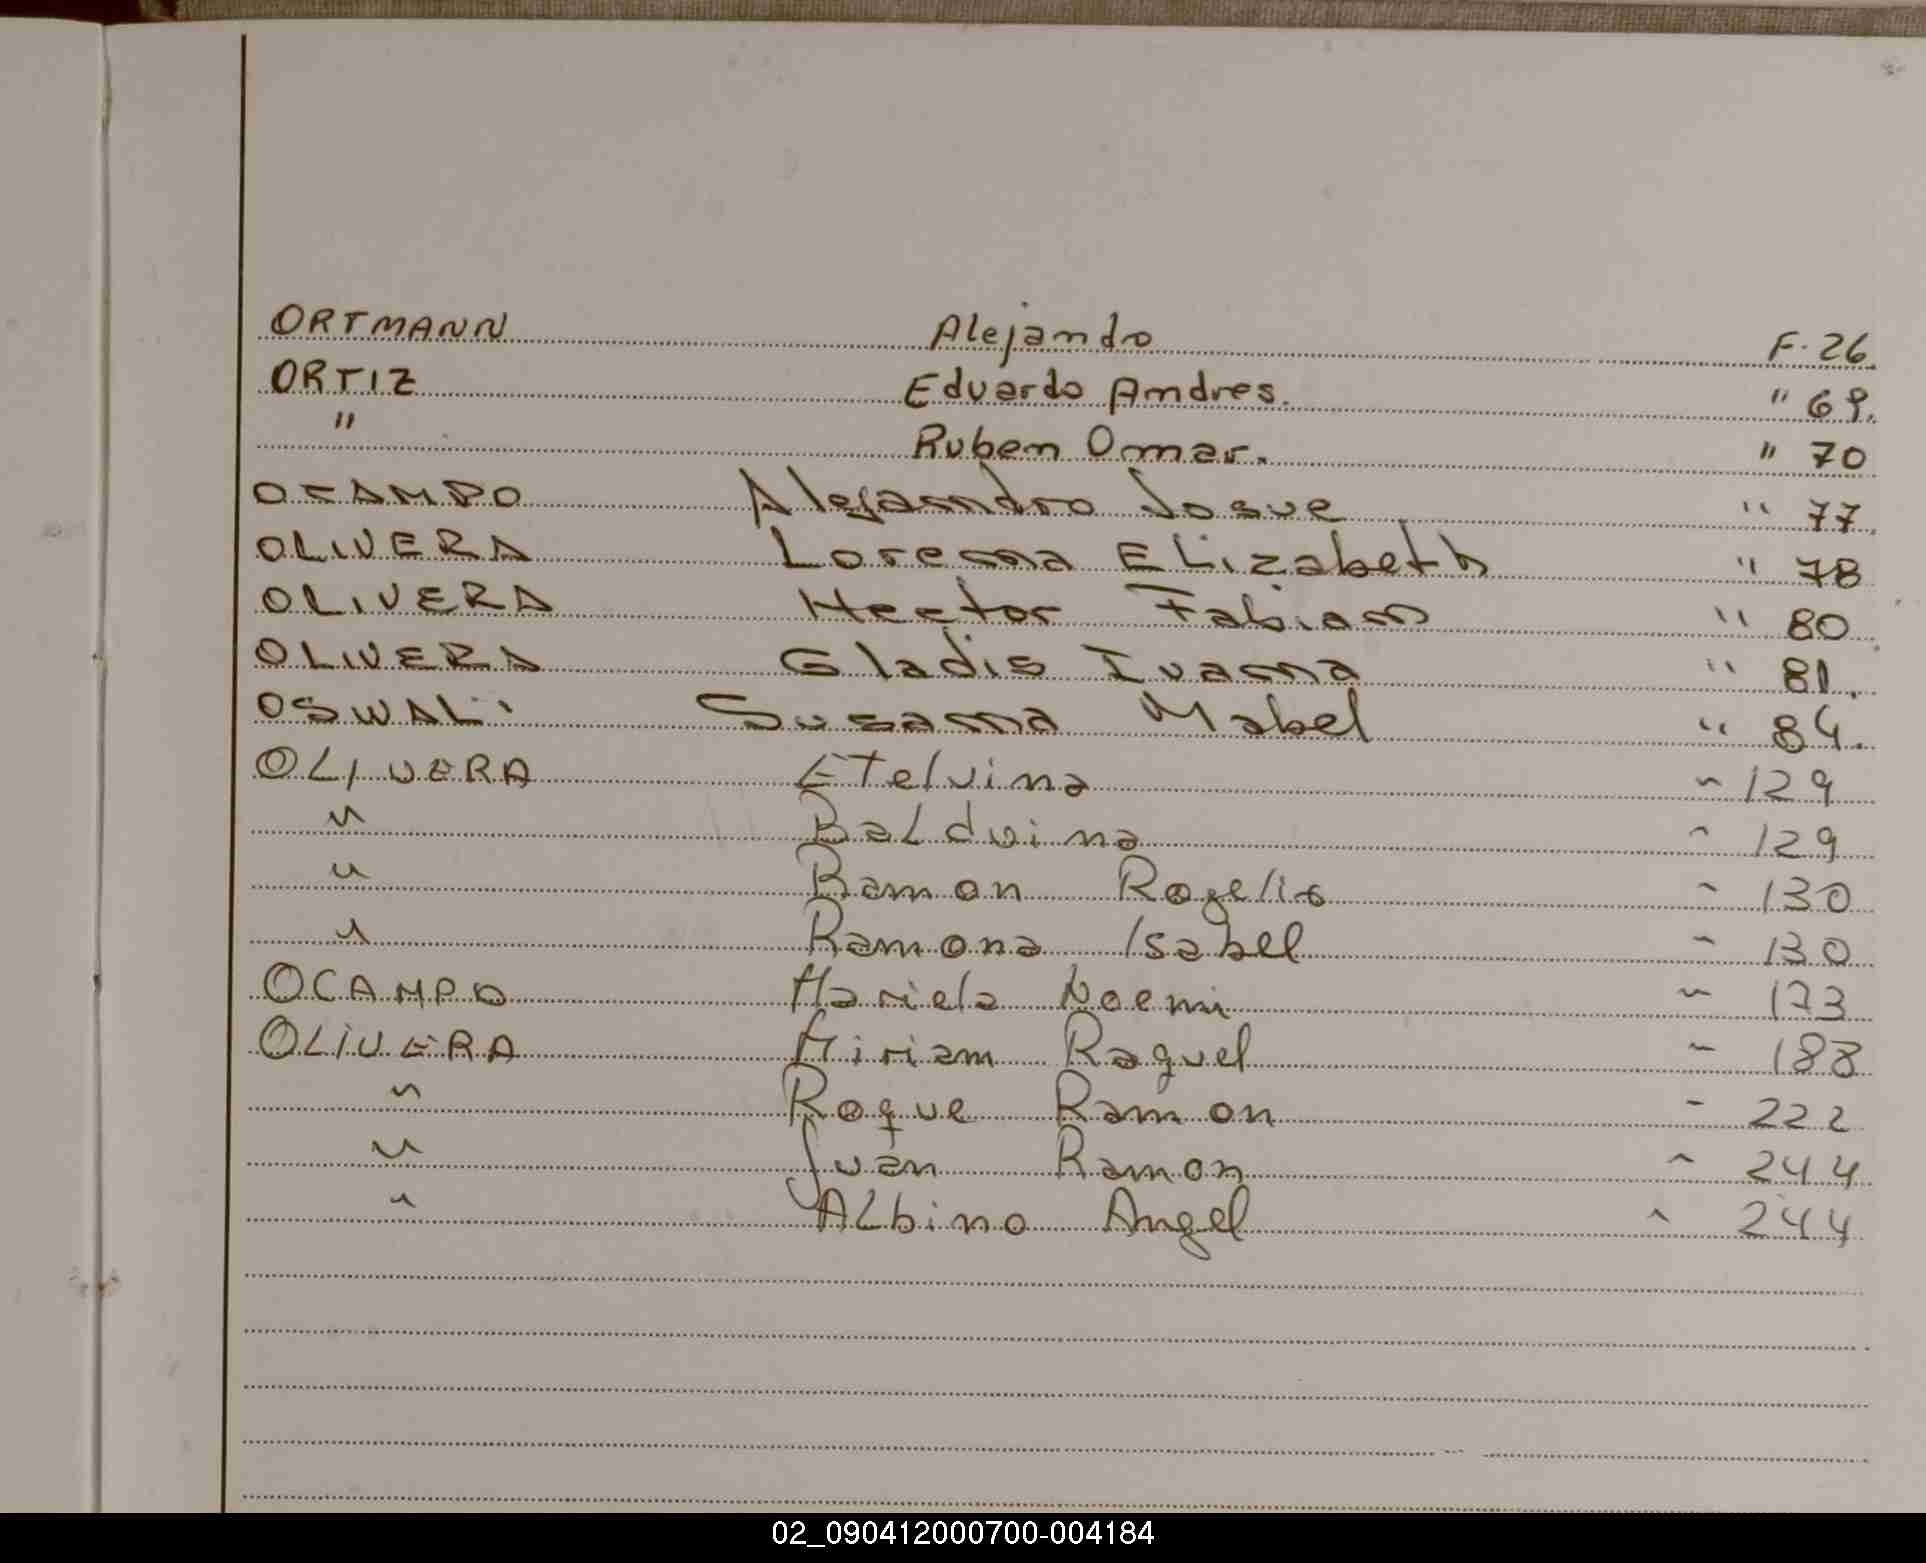 ORTMANN Alejandro F. 26.
ORTIZ Eduardo Andres. " 69.
" Ruben Omar. " 70
OCAMPO Alejandro Josue " 77.
OLIVERA Lorena Elizabeth " 78
OLIVERA Hector Fabian " 80
OLIVERA Gladis Ivana " 81.
OSWAL. Susana Mabel " 84.
OLIVERA ETelvina " 129
" BaLduina " 129
" Ramon Rogelio " 130
" Ramona Isabel " 130
OCAMPO Mariela Noemi " 173
OLIVERA Miriam Raquel " 188
" Roque Ramon " 222
" Juan Ramon " 244
" ALbino Angel " 244
02_090412000700-004184